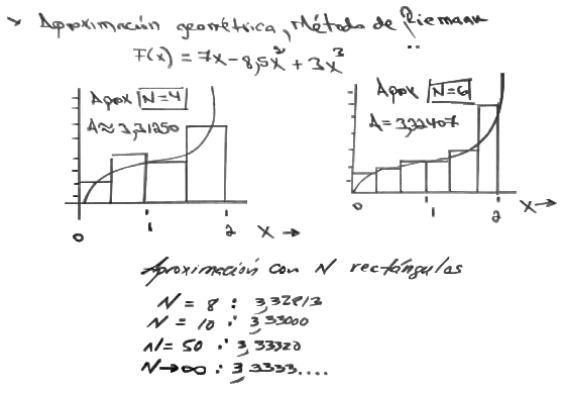 > Aproximación geométrica, Método de Riemann
F(x) = 7x - 8,5x² + 3x³
Aprox N=4
A≈3,31250
0 1 2 X →
Aprox N=6
A = 3,32407
0 1 2 X →
Aproximación con N rectángulos
N = 8 : 3,32813
N = 10 : 3,33000
N = 50 : 3,33320
N→∞ : 3,3333....